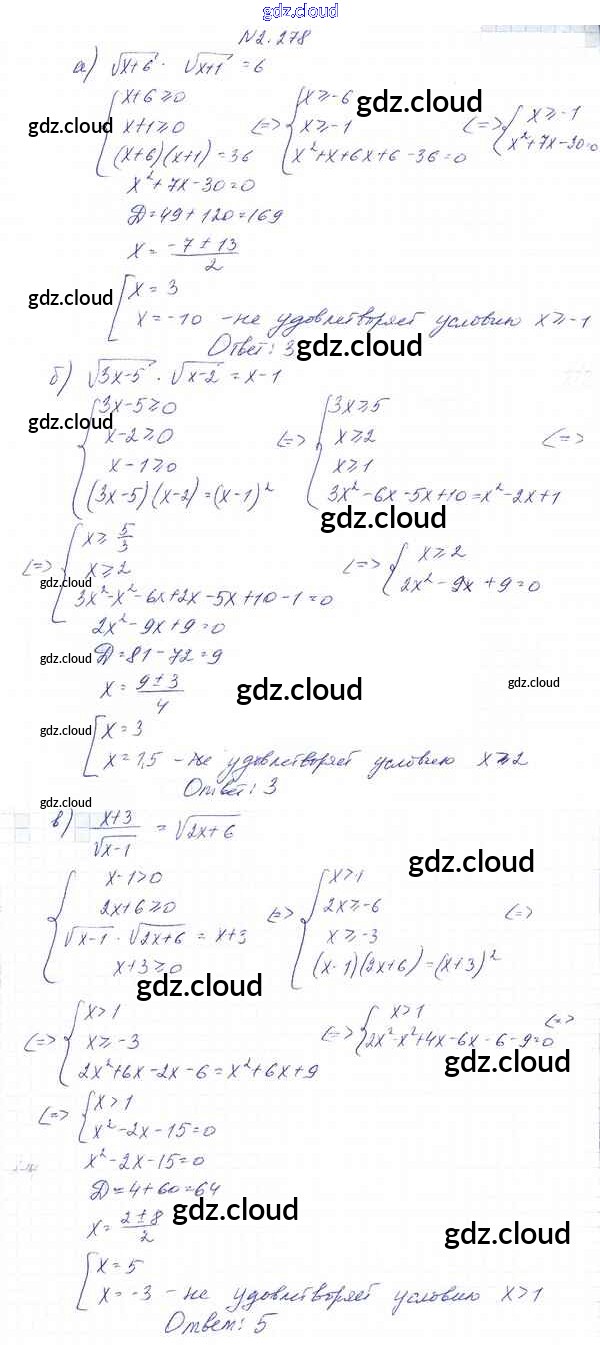 gdz.cloud
N2.278
а) √x+6 · √x+1 = 6
{ x+6≥0 {x≥-6 gdz.cloud
gdz.cloud x+1≥0 <=> x≥-1 <=> { x≥-1
(x+6)(x+1)=36 x²+x+6x+6-36=0 x²+7x-30=0
x²+7x-30=0
Д=49+120=169
x = (-7±13)/2
gdz.cloud [ x=3
x=-10 - не удовлетворяет условию x≥-1
Ответ: 3 gdz.cloud
б) √3x-5 · √x-2 = x-1
gdz.cloud { 3x-5≥0 { 3x≥5
x-2≥0 <=> x≥2 <=>
x-1≥0 x≥1
(3x-5)(x-2)=(x-1)² 3x²-6x-5x+10=x²-2x+1
gdz.cloud
<=> { x≥5/3
x≥2 <=> { x≥2
gdz.cloud 2x²-9x+9=0
3x²-x²-6x+2x-5x+10-1=0
2x²-9x+9=0
gdz.cloud Д=81-72=9
x = (9±3)/4 gdz.cloud gdz.cloud
gdz.cloud [ x=3
x=1,5 - не удовлетворяет условию x≥2
Ответ: 3
gdz.cloud
в) (x+3)/√x-1 = √2x+6
gdz.cloud
{ x-1>0 { x>1
2x+6≥0 <=> 2x≥-6 <=>
√x-1 · √2x+6 = x+3 x≥-3
x+3≥0 (x-1)(2x+6)=(x+3)²
gdz.cloud
<=> { x>1 <=> { x>1 <=>
x≥-3 2x²-x²+4x-6x-6-9=0
2x²+6x-2x-6=x²+6x+9 gdz.cloud
<=> { x>1
x²-2x-15=0
x²-2x-15=0
Д=4+60=64
x = (2±8)/2 gdz.cloud
gdz.cloud
[ x=5
x=-3 - не удовлетворяет условию x>1
Ответ: 5